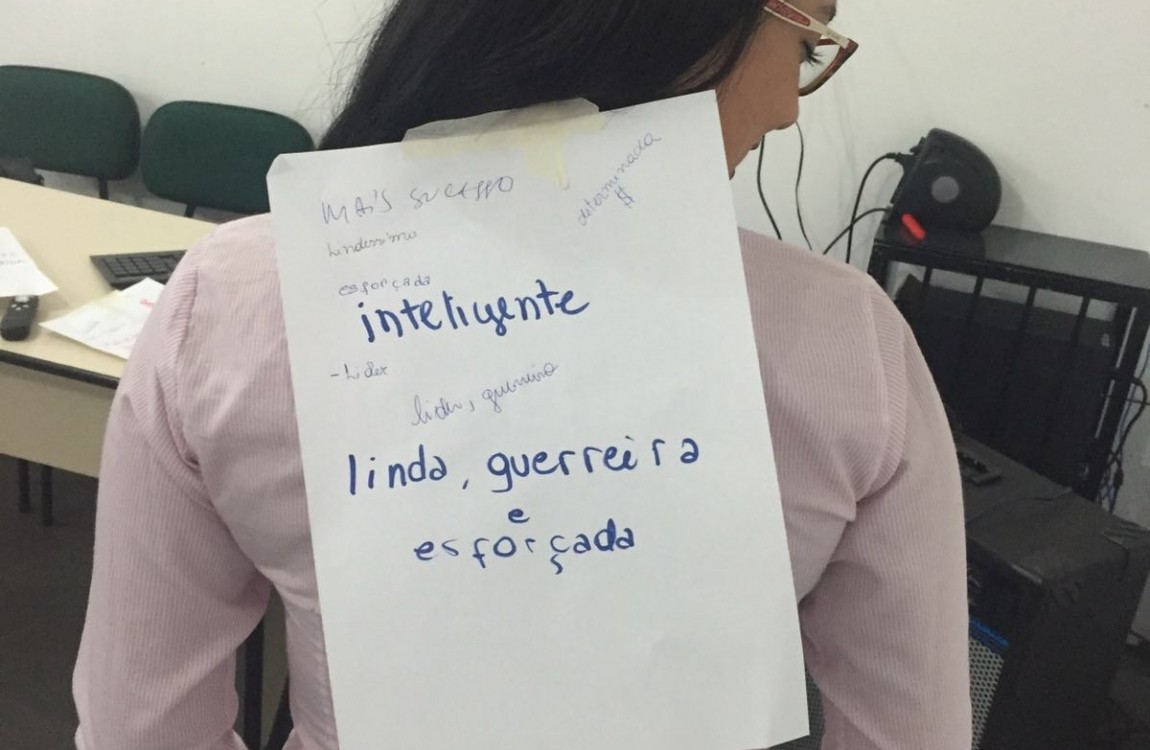 MAIS SUCESSO
determinada
#
Lindíssima
esforçada
inteligente
- Lider
lider, guerreira
linda, guerreira
e
esforçada